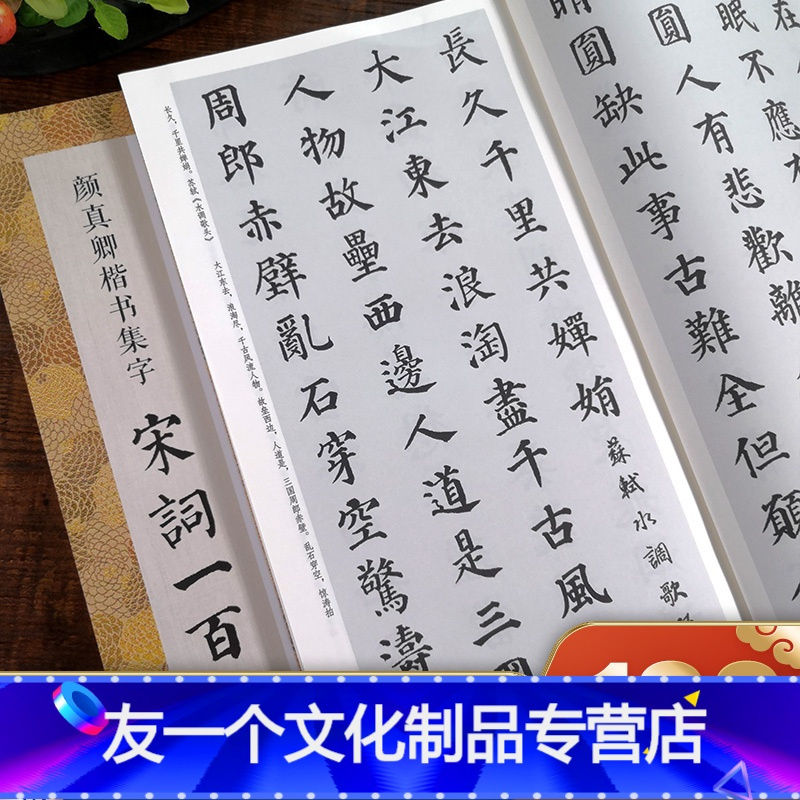 眠不應
圓人有悲歡離
晴圓缺此事古難全但願
長久千里共嬋娟
蘇軾水調歌
大江東去浪淘盡千古風
人物故壘西邊人道是三國
周郎赤壁亂石穿空驚濤
长久，千里共婵娟。苏轼《水调歌头》
大江东去，浪淘尽，千古风流人物。故垒西边，人道是，三国周郎赤壁。乱石穿空，惊涛拍
颜真卿楷书集字
宋詞一百
友一个文化制品专营店